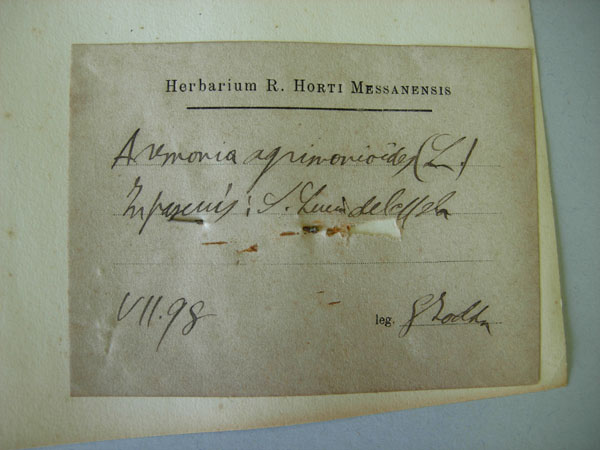 Herbarium R. HORTI MESSANENSIS
Aremonia agrimonioides (L.)
S. Lucia del
VII.98
leg. G Zodda